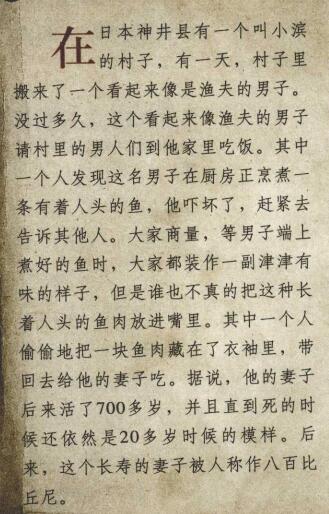 在日本神井县有一个叫小滨
的村子，有一天，村子里
搬来了一个看起来像是渔夫的男子。
没过多久，这个看起来像渔夫的男子
请村里的男人们到他家里吃饭。其中
一个人发现这名男子在厨房正烹煮一
条有着人头的鱼，他吓坏了，赶紧去
告诉其他人。大家商量，等男子端上
煮好的鱼时，大家都装作一副津津有
味的样子，但是谁也不真的把这种长
着人头的鱼肉放进嘴里。其中一个人
偷偷地把一块鱼肉藏在了衣袖里，带
回去给他的妻子吃。据说，他的妻子
后来活了700多岁，并且直到死的时
候还依然是20多岁时候的模样。后
来，这个长寿的妻子被人称作八百比
丘尼。